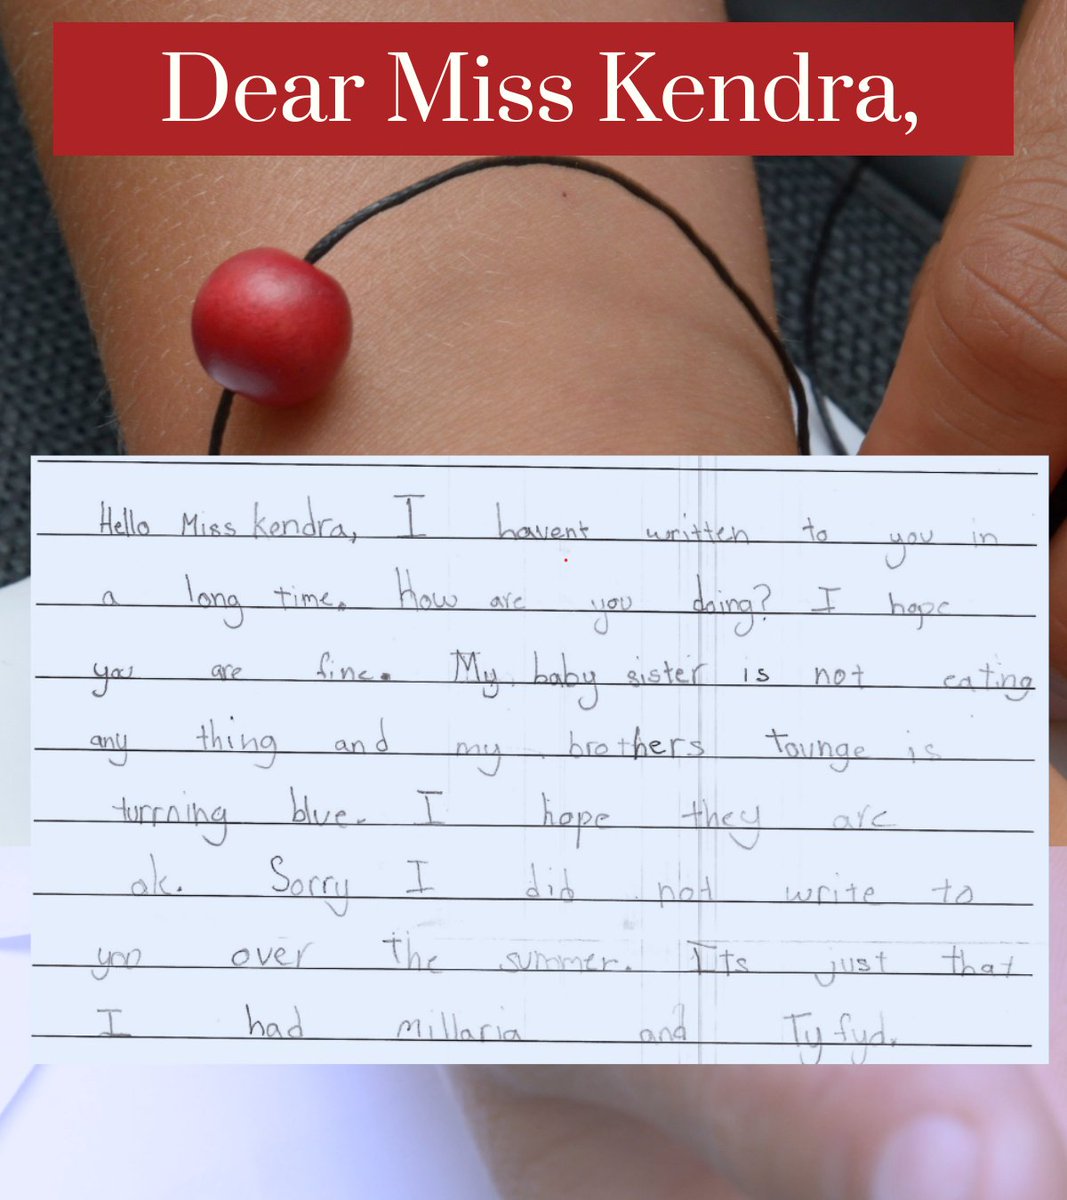 Dear Miss Kendra,
Hello Miss Kendra, I havent written to you in
a long time. How are you doing? I hope
you are fine. My baby sister is not eating
any thing and my brothers tounge is
turrning blue. I hope they are
ok. Sorry I did not write to
you over the summer. Its just that
I had millaria and Tyfyd.